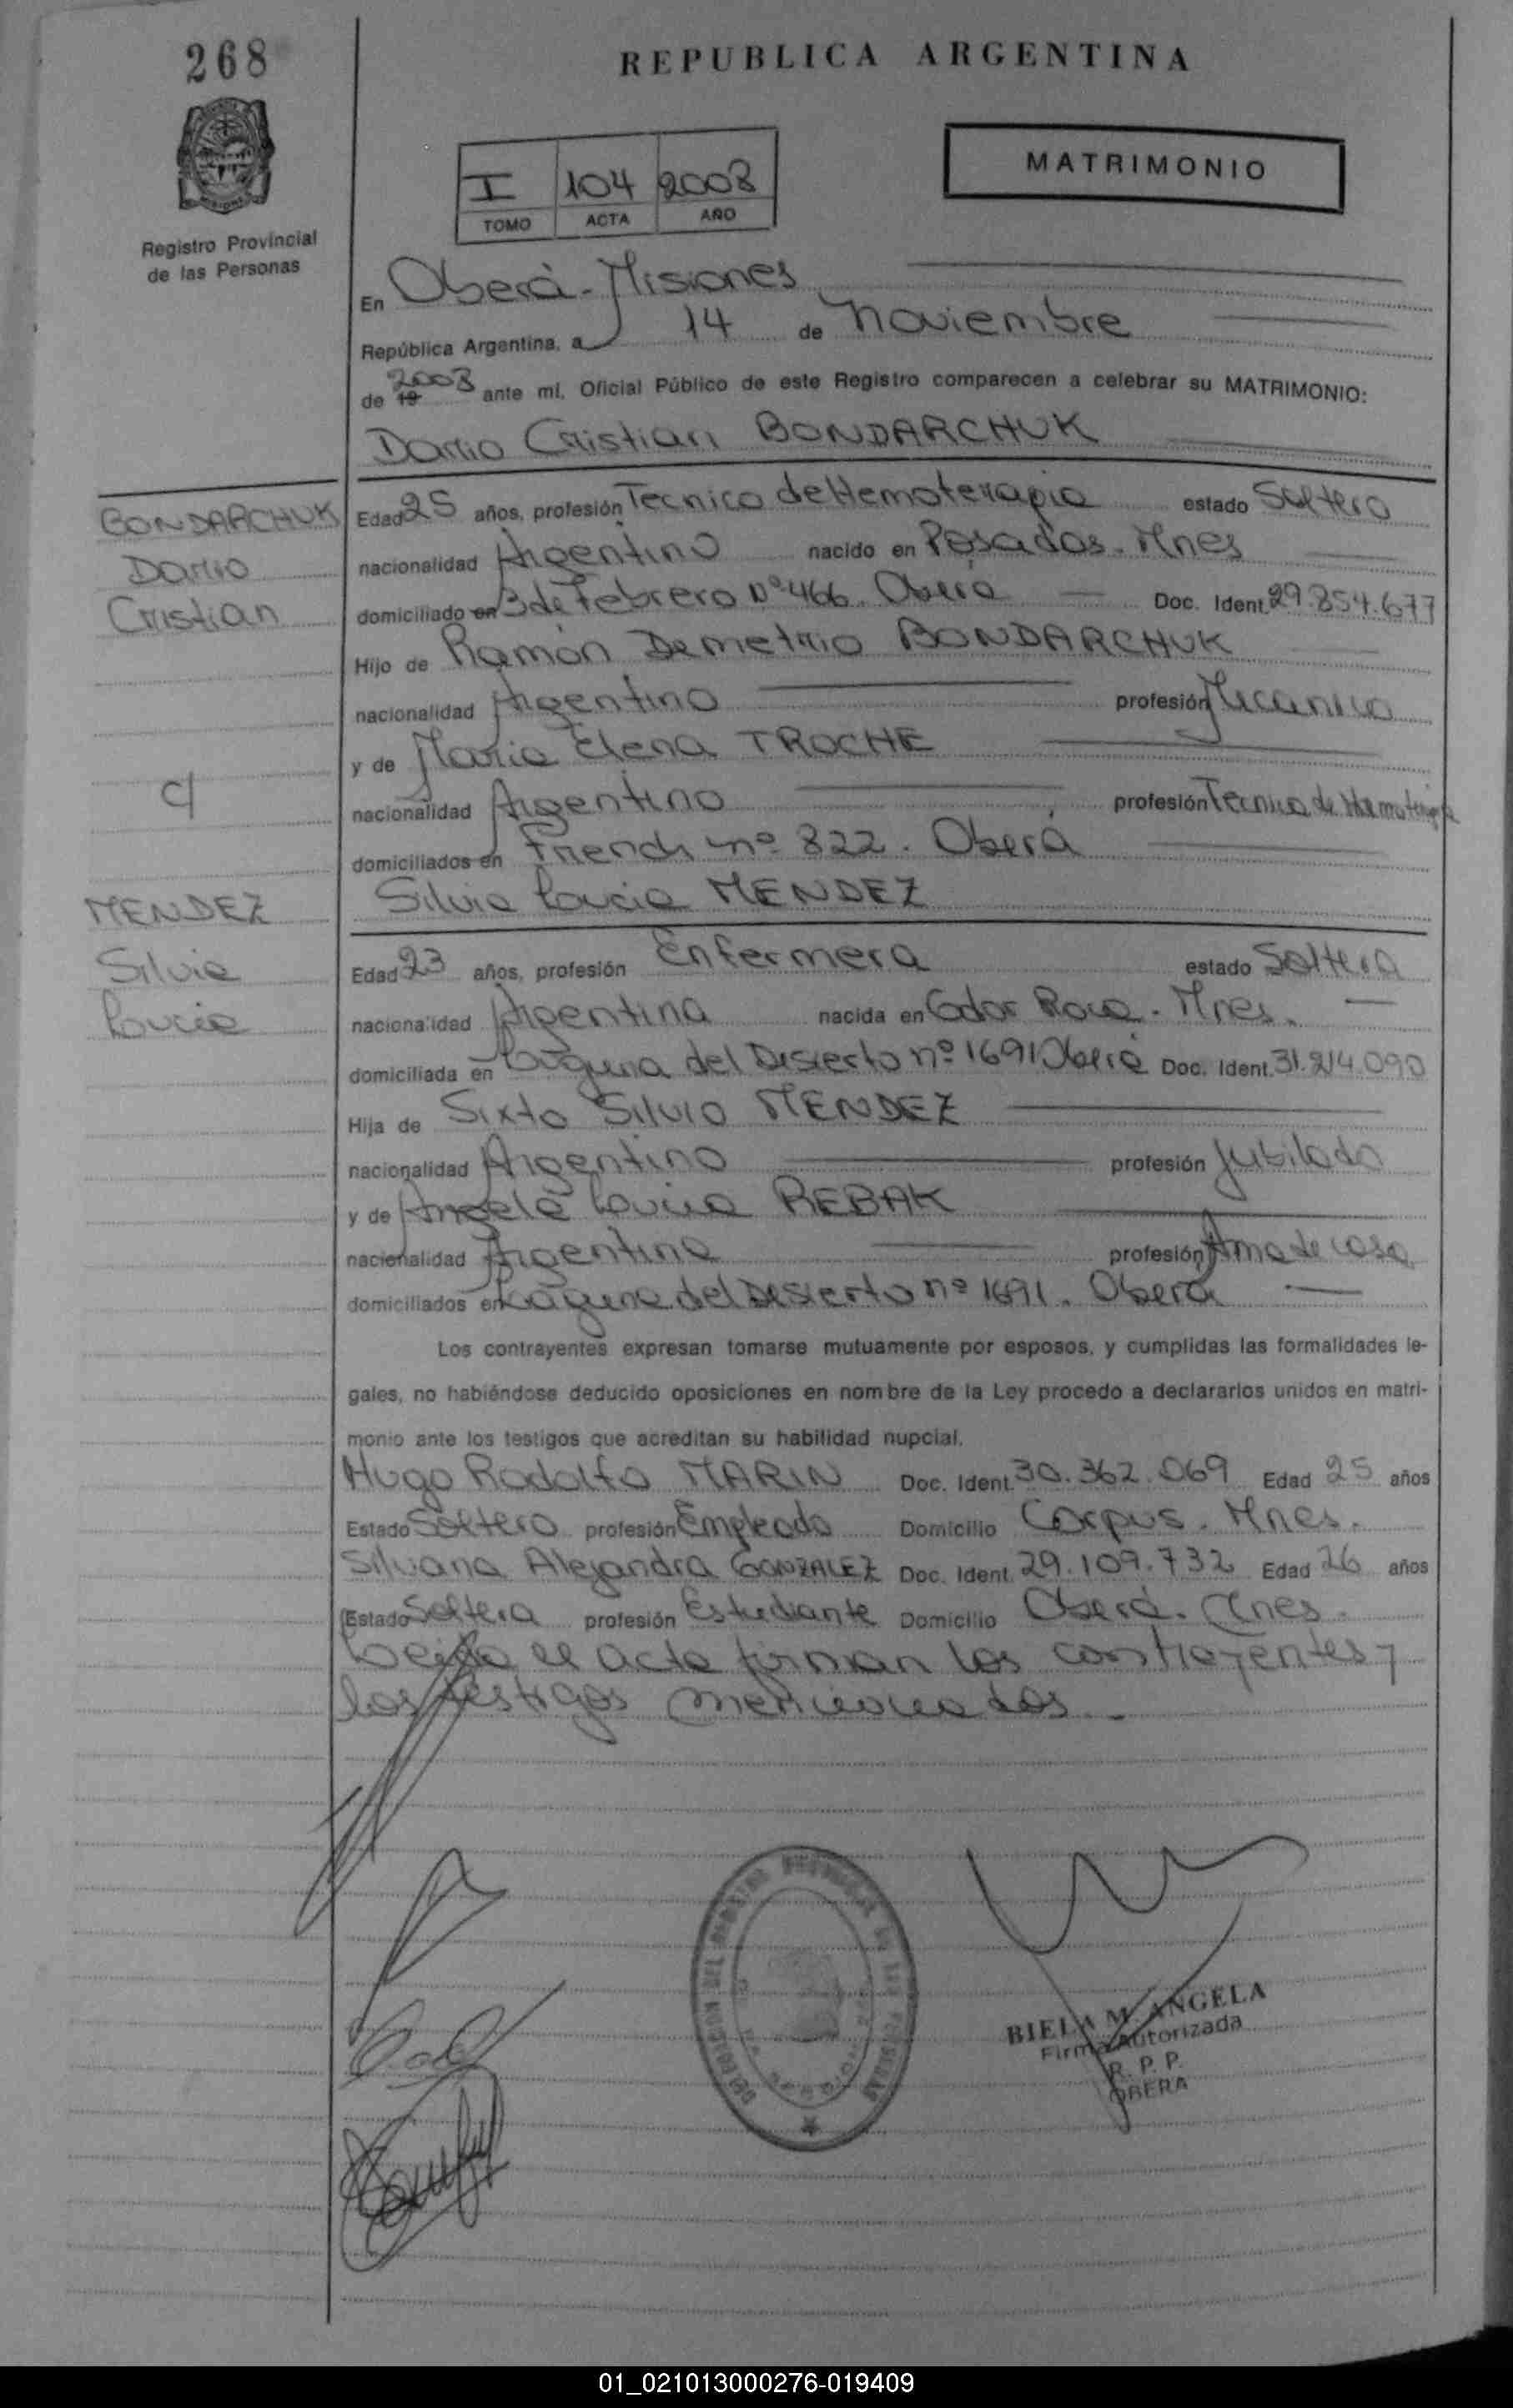 268
REPUBLICA ARGENTINA
MATRIMONIO
I 104 2008
TOMO ACTA AÑO
Registro Provincial
de las Personas
En Oberá - Misiones
República Argentina, a 14 de Noviembre
de 19 2008 ante mí, Oficial Público de este Registro comparecen a celebrar su MATRIMONIO:
Dario Cristian BONDARCHUK
BONDARCHUK
Dario
Cristian
c/
MENDEZ
Silvia
Lucia
Edad 25 años, profesión Tecnico de Hemoterapia estado Soltero
nacionalidad Argentino nacido en Posadas. Mnes
domiciliado en 3 de Febrero Nº 466. Oberá Doc. Ident. 29.854.677
Hijo de Ramón Demetrio BONDARCHUK
nacionalidad Argentino profesión Mecanico
y de Maria Elena TROCHE
nacionalidad Argentino profesión Tecnica de Hemoterapia
domiciliados en French nº 822. Oberá
Silvia Lucia MENDEZ
Edad 23 años, profesión Enfermera estado Soltera
nacionalidad Argentina nacida en Gdor Roca. Mnes.
domiciliada en Laguna del Desierto nº 1691 Oberá Doc. Ident. 31.214.090
Hija de Sixto Silvio MENDEZ
nacionalidad Argentino profesión Jubilado
y de Angela Lucia REBAK
nacionalidad Argentina profesión Ama de casa
domiciliados en Laguna del Desierto nº 1691. Oberá
Los contrayentes expresan tomarse mutuamente por esposos, y cumplidas las formalidades le-
gales, no habiéndose deducido oposiciones en nombre de la Ley procedo a declararlos unidos en matri-
monio ante los testigos que acreditan su habilidad nupcial.
Hugo Rodolfo MARIN Doc. Ident. 30.362.069 Edad 25 años
Estado Soltero profesión Empleado Domicilio Corpus. Mnes.
Silvana Alejandra GONZALEZ Doc. Ident. 29.109.732 Edad 26 años
Estado Soltera profesión Estudiante Domicilio Oberá. Mnes.
Leida el acta firman los contrayentes y
los testigos mencionados.
BIELA M. ANGELA
Firma Autorizada
R. P. P.
OBERA
01_021013000276-019409